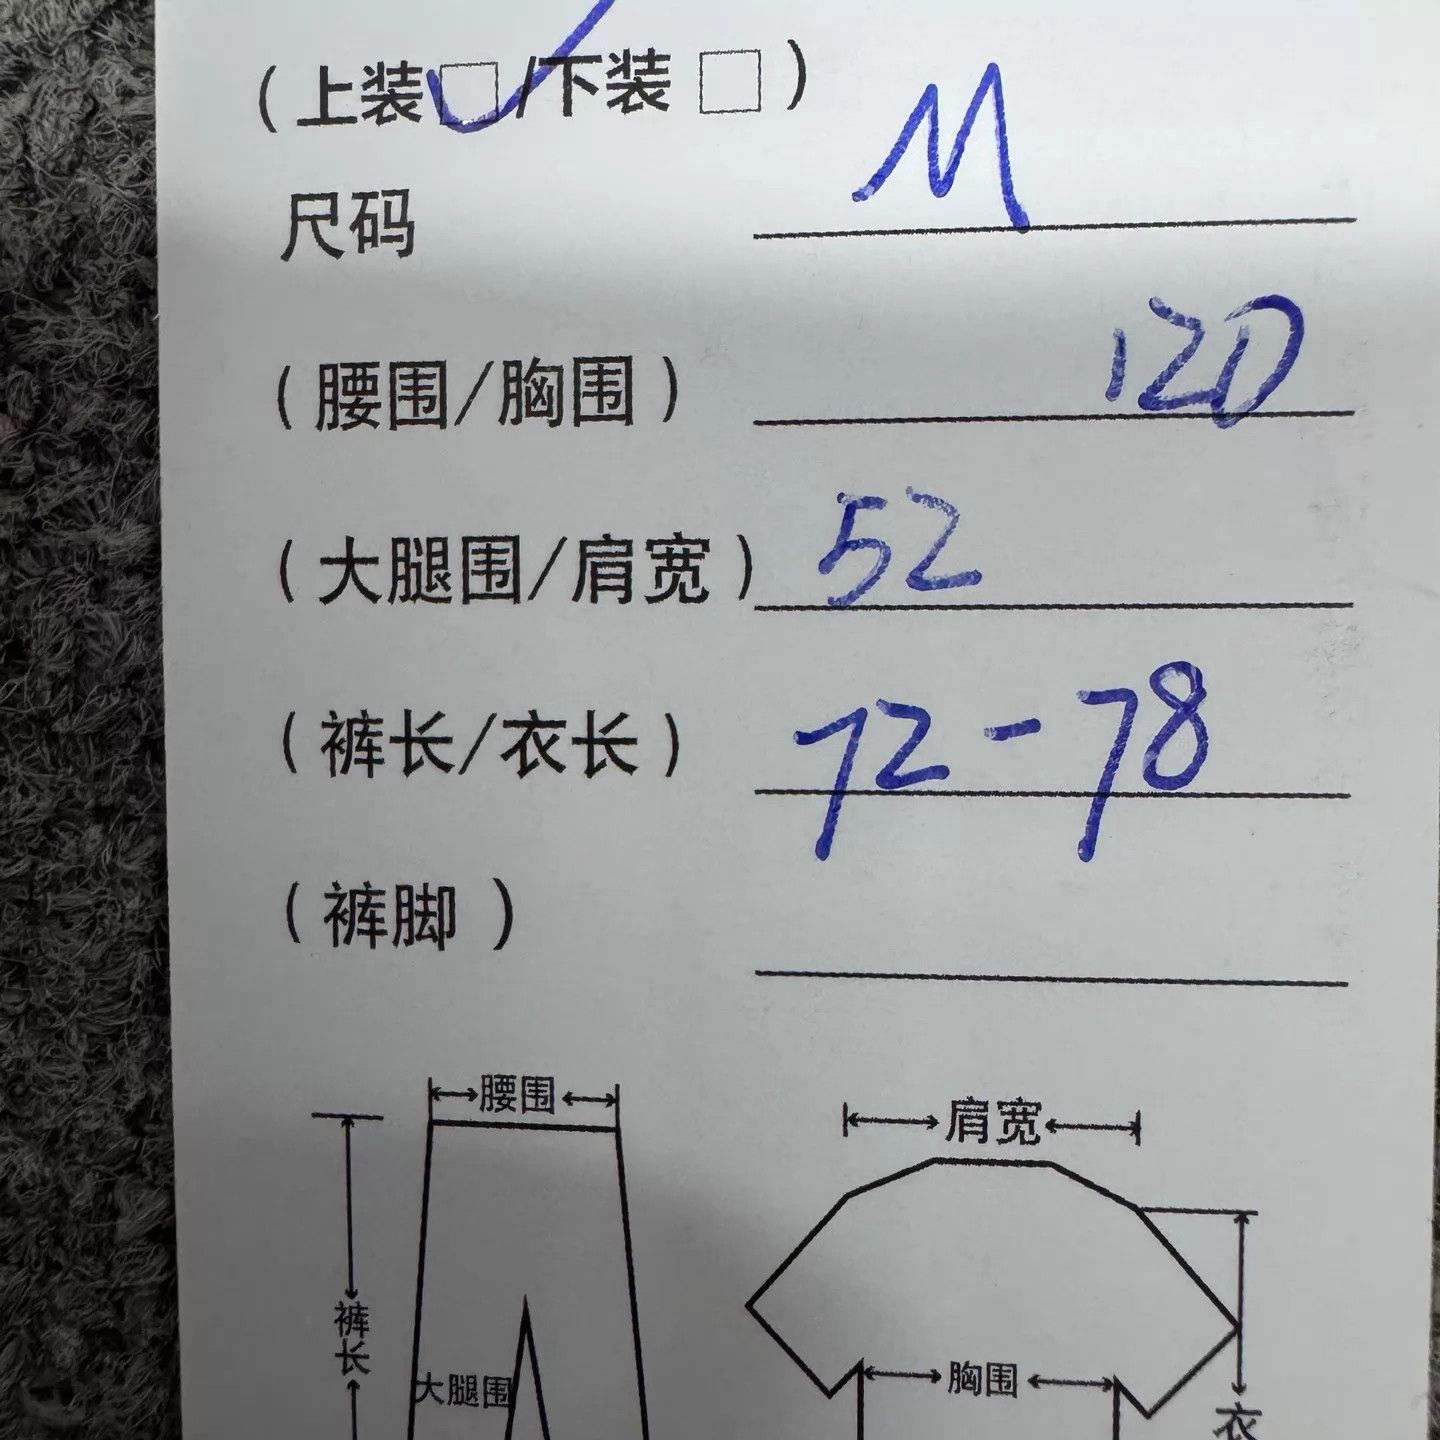 （上装□/下装 □）
尺码 M
（腰围/胸围） 120
（大腿围/肩宽） 52
（裤长/衣长） 72-78
（裤脚 ）
腰围
肩宽
裤长
大腿围
胸围
衣